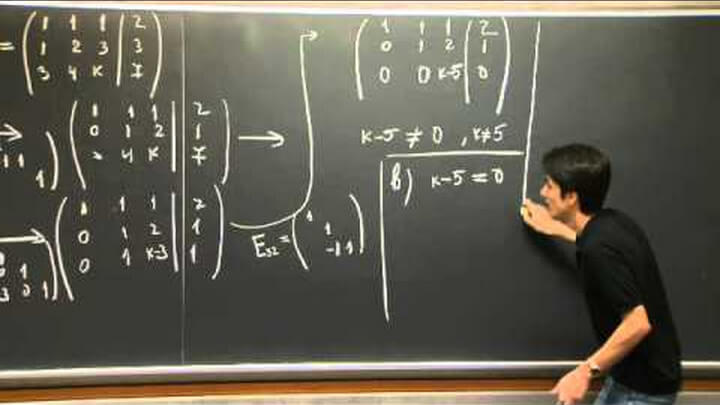 = ( 1 1 1 | 2
1 2 3 | 3
3 4 k | 7 )
→ ( 1 1 1 | 2
0 1 2 | 1
3 4 k | 7 ) →
→ ( 1 1 1 | 2
0 1 2 | 1
0 1 k-3 | 1 )
E32 = ( 1
1
-1 1 )
( 1 1 1 | 2
0 1 2 | 1
0 0 k-5 | 0 )
k-5 ≠ 0 , k≠5
b) k-5 = 0